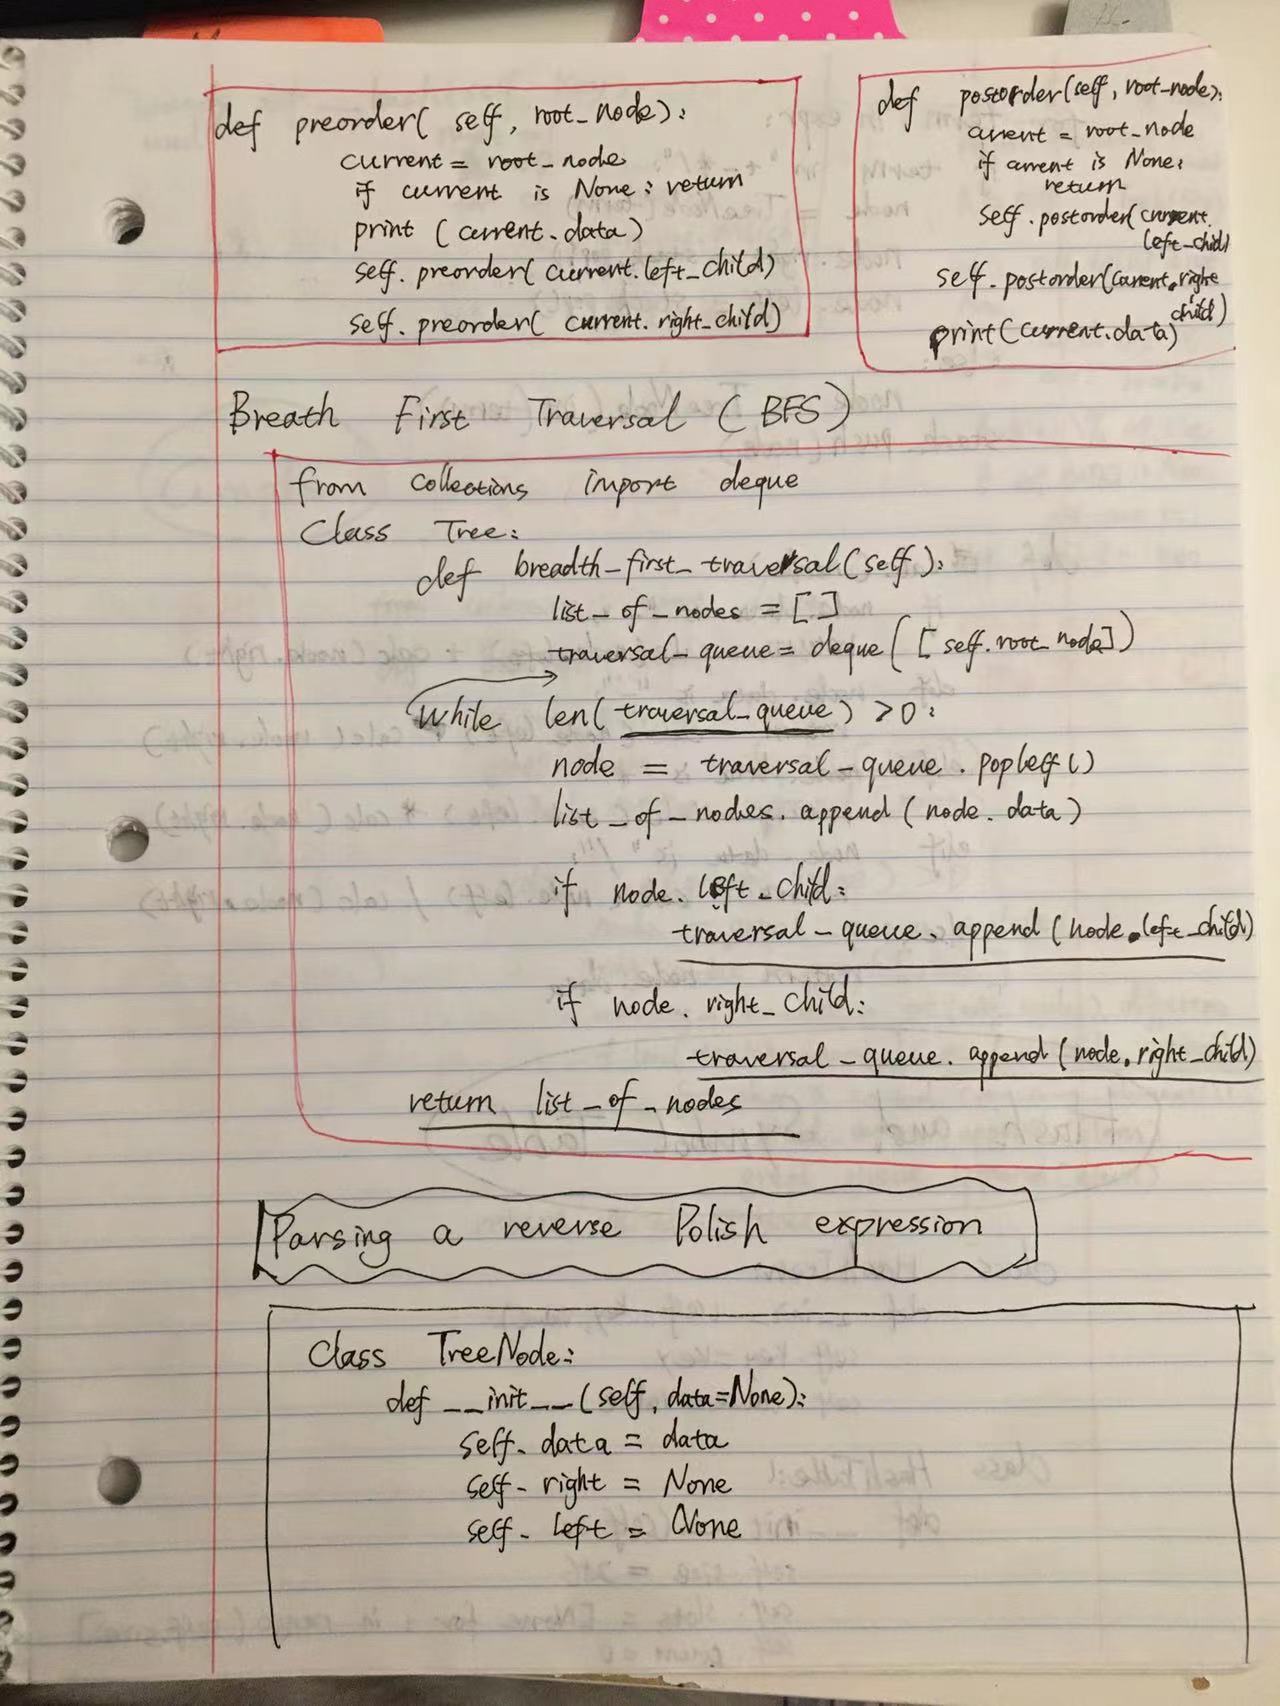 def preorder( self, root_node):
current = root_node
if current is None: return
print (current.data)
self. preorder( current.left_child)
self. preorder( current. right_child)
def postorder(self, root-node):
current = root_node
if current is None:
return
self.postorder(current.
left_child)
self.postorder(current.right
child)
print(current.data)
Breath First Traversal (BFS)
from collections import deque
Class Tree:
def breadth_first_traversal(self):
list_of_nodes = []
traversal_queue = deque([self.root_node])
while len(traversal_queue) >0:
node = traversal_queue.popleft()
list_of_nodes.append(node.data)
if node.left_child:
traversal_queue.append(node.left_child)
if node.right_child:
traversal_queue.append(node.right_child)
return list_of_nodes
Parsing a reverse Polish expression
Class TreeNode:
def __init__(self, data=None):
self.data = data
self.right = None
self.left = None